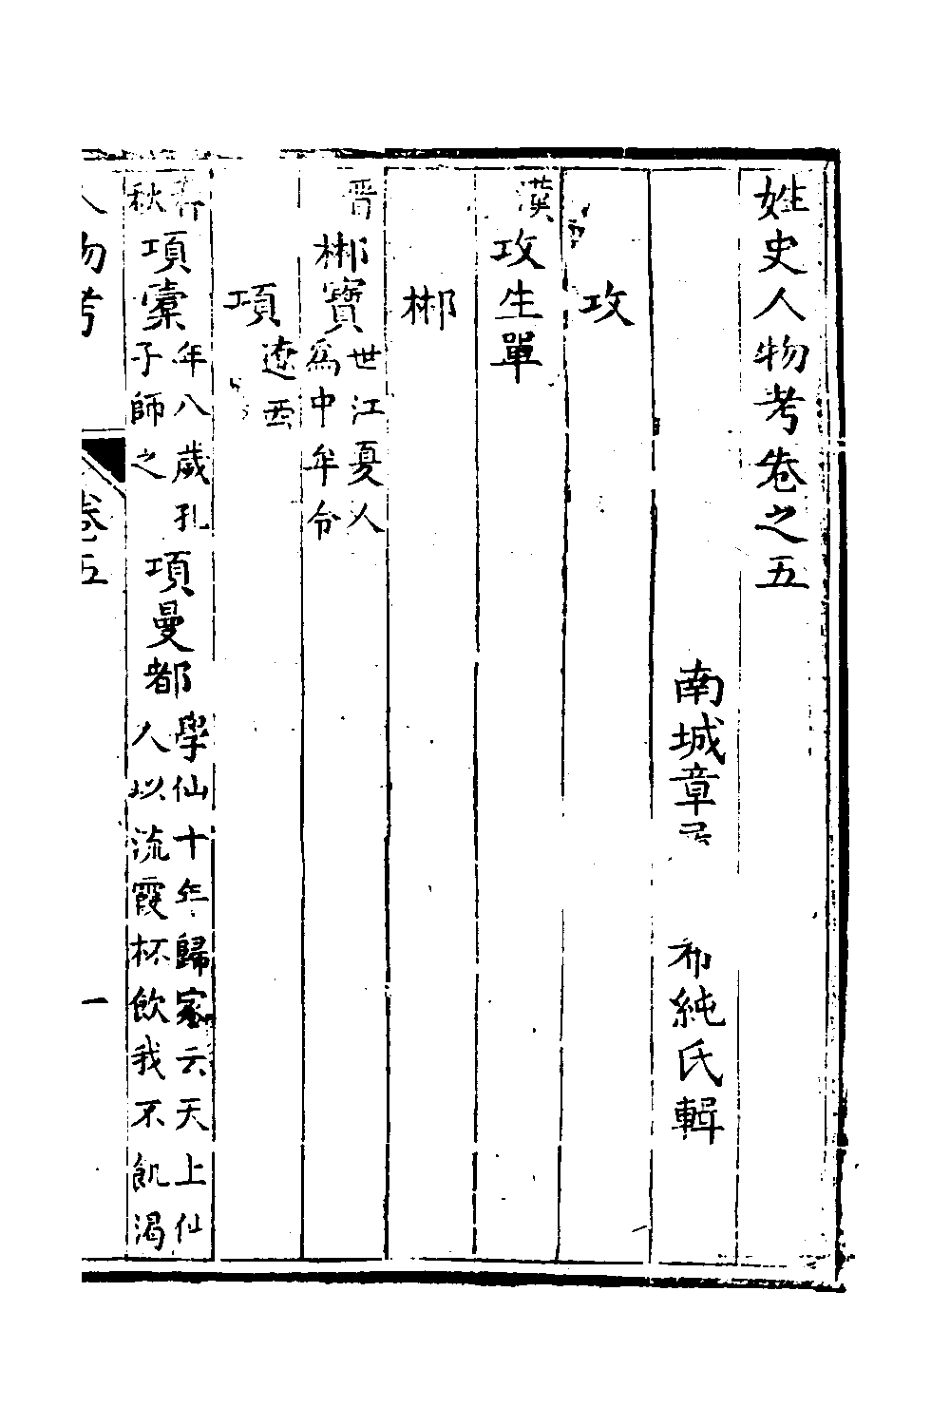 姓史人物考卷之五
南城章 希純氏輯
攻
漢 攻生單
郴
晋 郴寶 世江夏人
爲中牟令
項 遼西
春秋 項橐 年八歲孔
子師之
項曼都 學仙十年歸家云天上仙
人以流霞杯飲我不飢渴
人物考 卷五 一